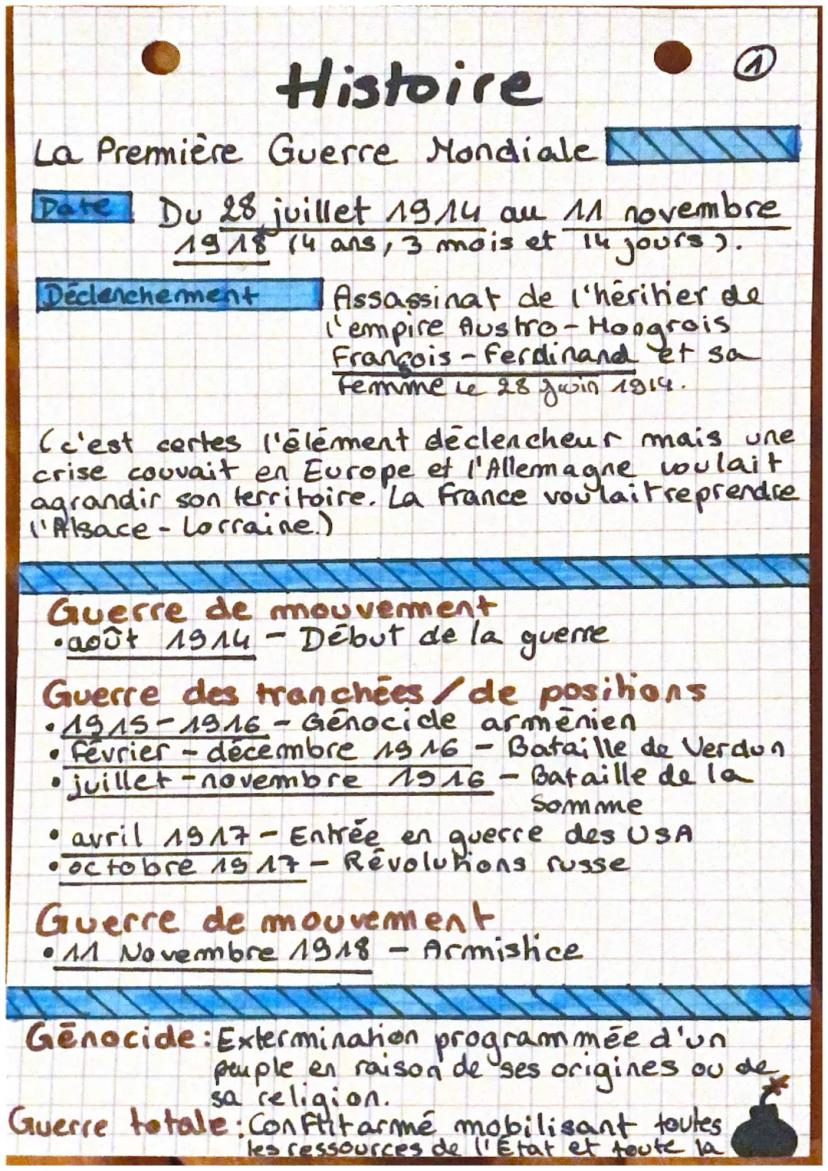 1
Histoire
La Première Guerre Mondiale
Date Du 28 juillet 1914 au 11 novembre
1918 (4 ans, 3 mois et 14 jours).
Déclenchement Assassinat de l'héritier de
l'empire Austro-Hongrois
François-Ferdinand et sa
femme le 28 juin 1914.
(c'est certes l'élément déclencheur mais une
crise couvait en Europe et l'Allemagne voulait
agrandir son territoire. La France voulait reprendre
l'Alsace-Lorraine.)
Guerre de mouvement
• août 1914 - Début de la guerre
Guerre des tranchées / de positions
• 1915-1916 - Génocide arménien
• février - décembre 1916 - Bataille de Verdun
• juillet - novembre 1916 - Bataille de la
Somme
• avril 1917 - Entrée en guerre des USA
• octobre 1917 - Révolutions russe
Guerre de mouvement
• 11 Novembre 1918 - Armistice
Génocide : Extermination programmée d'un
peuple en raison de ses origines ou de
sa religion.
Guerre totale : Conflit armé mobilisant toutes
les ressources de l'État et toute la